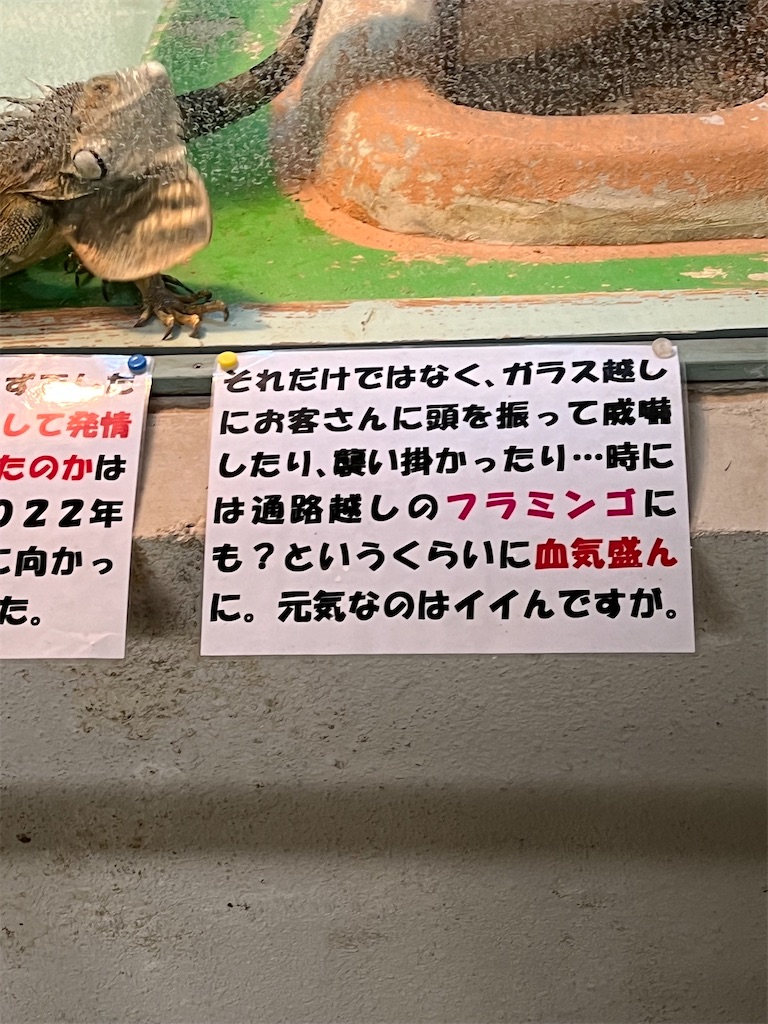 して発情
たのかは
022年
に向かっ
た。
それだけではなく、ガラス越し
にお客さんに頭を振って威嚇
したり、襲い掛かったり…時に
は通路越しのフラミンゴに
も？というくらいに血気盛ん
に。元気なのはイイんですが。